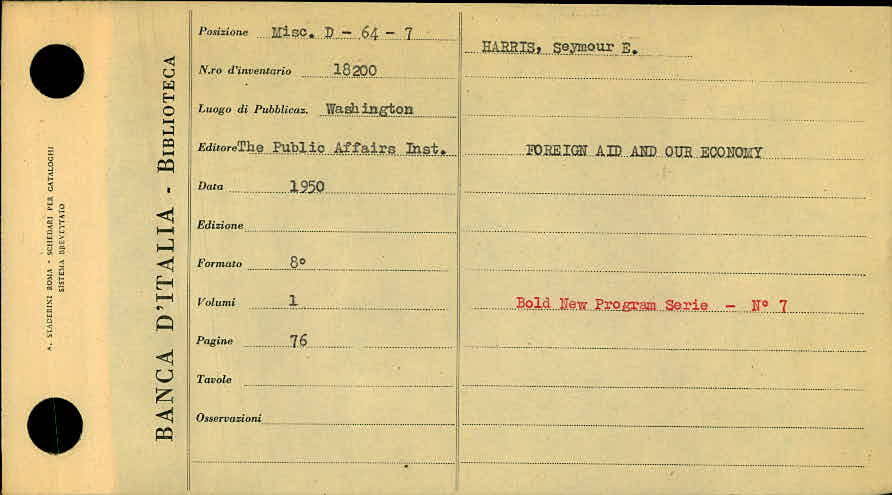 A. STADERINI ROMA - SCHEDARI PER CATALOGHI
SISTEMA BREVETTATO
BANCA D'ITALIA - BIBLIOTECA
Posizione Misc. D - 64 - 7
N.ro d'inventario 18200
Luogo di Pubblicaz. Washington
Editore The Public Affairs Inst.
Data 1950
Edizione
Formato 8°
Volumi 1
Pagine 76
Tavole
Osservazioni
HARRIS, Seymour E.
FOREIGN AID AND OUR ECONOMY
Bold New Program Serie - N° 7